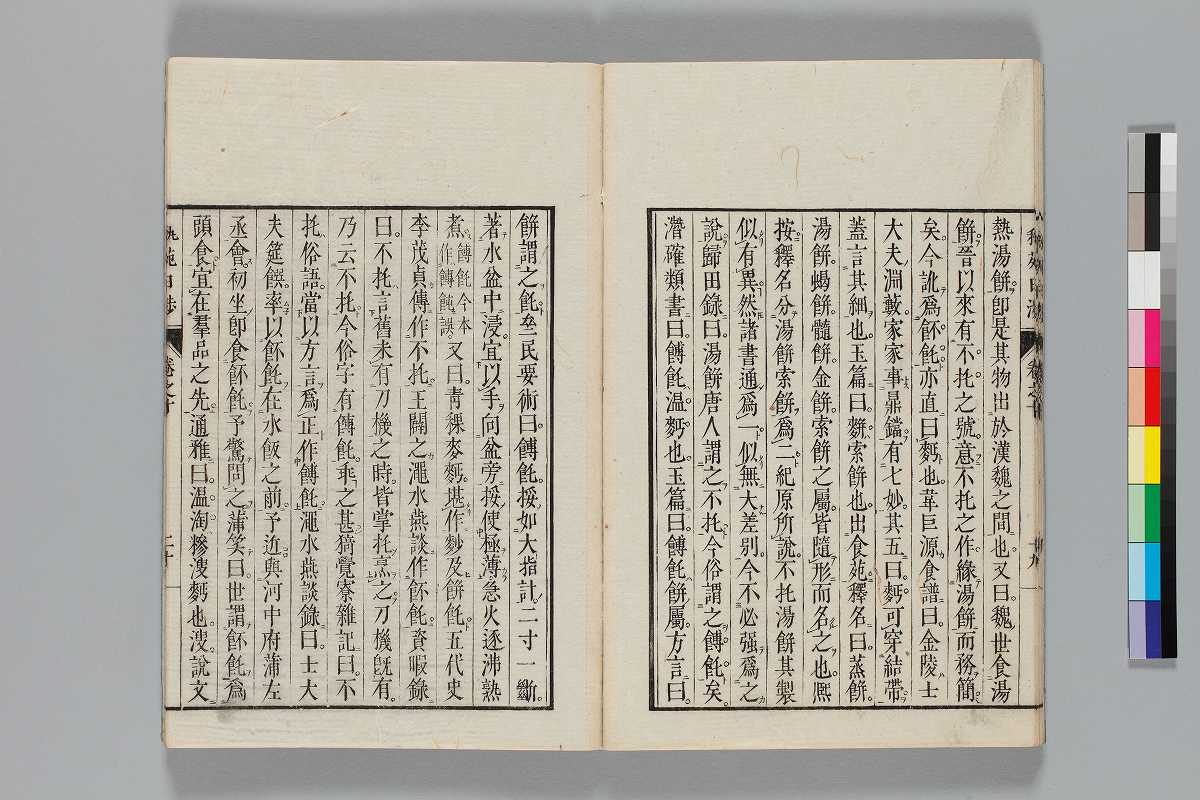 熱湯餅卽是其物出於漢魏之間也又曰魏世食湯
餅晉以來有不托之號意不托之作緣湯餅而務簡
矣今訛爲飥亦直曰麪也韋巨源食譜曰金陵士
大夫淵藪家家事鼎鐺有七妙其五曰麪可穿結帶
蓋言其細也玉篇曰䴵索餅也出食苑釋名曰蒸餅
湯餅蝎餅髓餅金餅索餅之屬皆隨形而名之也煕
按釋名分湯餅索餅爲二紀原所說不托湯餅其製
似有異然諸書通爲一似無大差別今不必强爲之
說歸田錄曰湯餅唐人謂之不托今俗謂之餺飥矣
潛確類書曰餺飥温麪也玉篇曰餺飥餅屬方言曰
餅謂之飥
民要術曰餺飥挼如大指許二寸一斷
著水盆中浸宜以手向盆旁挼使極薄急火逐沸熟
煮
餺飥今本
作餺飩誤
又曰青稞麥麪堪作麨及餅飥五代史
李茂貞傳作不托王闢之澠水燕談作飥資暇錄
曰不托言舊未有刀機之時皆掌托烹之刀機旣有
乃云不托今俗字有餺飥乖之甚猗覺寮雜記曰不
托俗語當以方言爲正作餺飥澠水燕談錄曰士大
夫筵饌率以飥在水飯之前予近與河中府蒲左
丞會初坐卽食飥予驚問之蒲笑曰世謂飥爲
頭食宜在羣品之先通雅曰温淘糝溲麪也溲說文
卷之十
二十